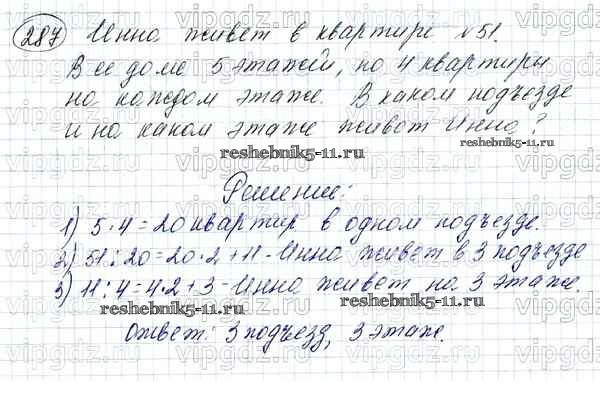 287 Инна живет в квартире №51.
В ее доме 5 этажей, по 4 квартиры
на каждом этаже. В каком подъезде
и на каком этаже живет Инна?
reshebnik5-11.ru
reshebnik5-11.ru
Решение:
1) 5·4=20 квартир в одном подъезде.
2) 51:20=20·2+11-Инна живет в 3 подъезде
3) 11:4=4·2+3-Инна живет на 3 этаже.
reshebnik5-11.ru
reshebnik5-11.ru
Ответ: 3 подъезд, 3 этаж.
vipgdz.ru